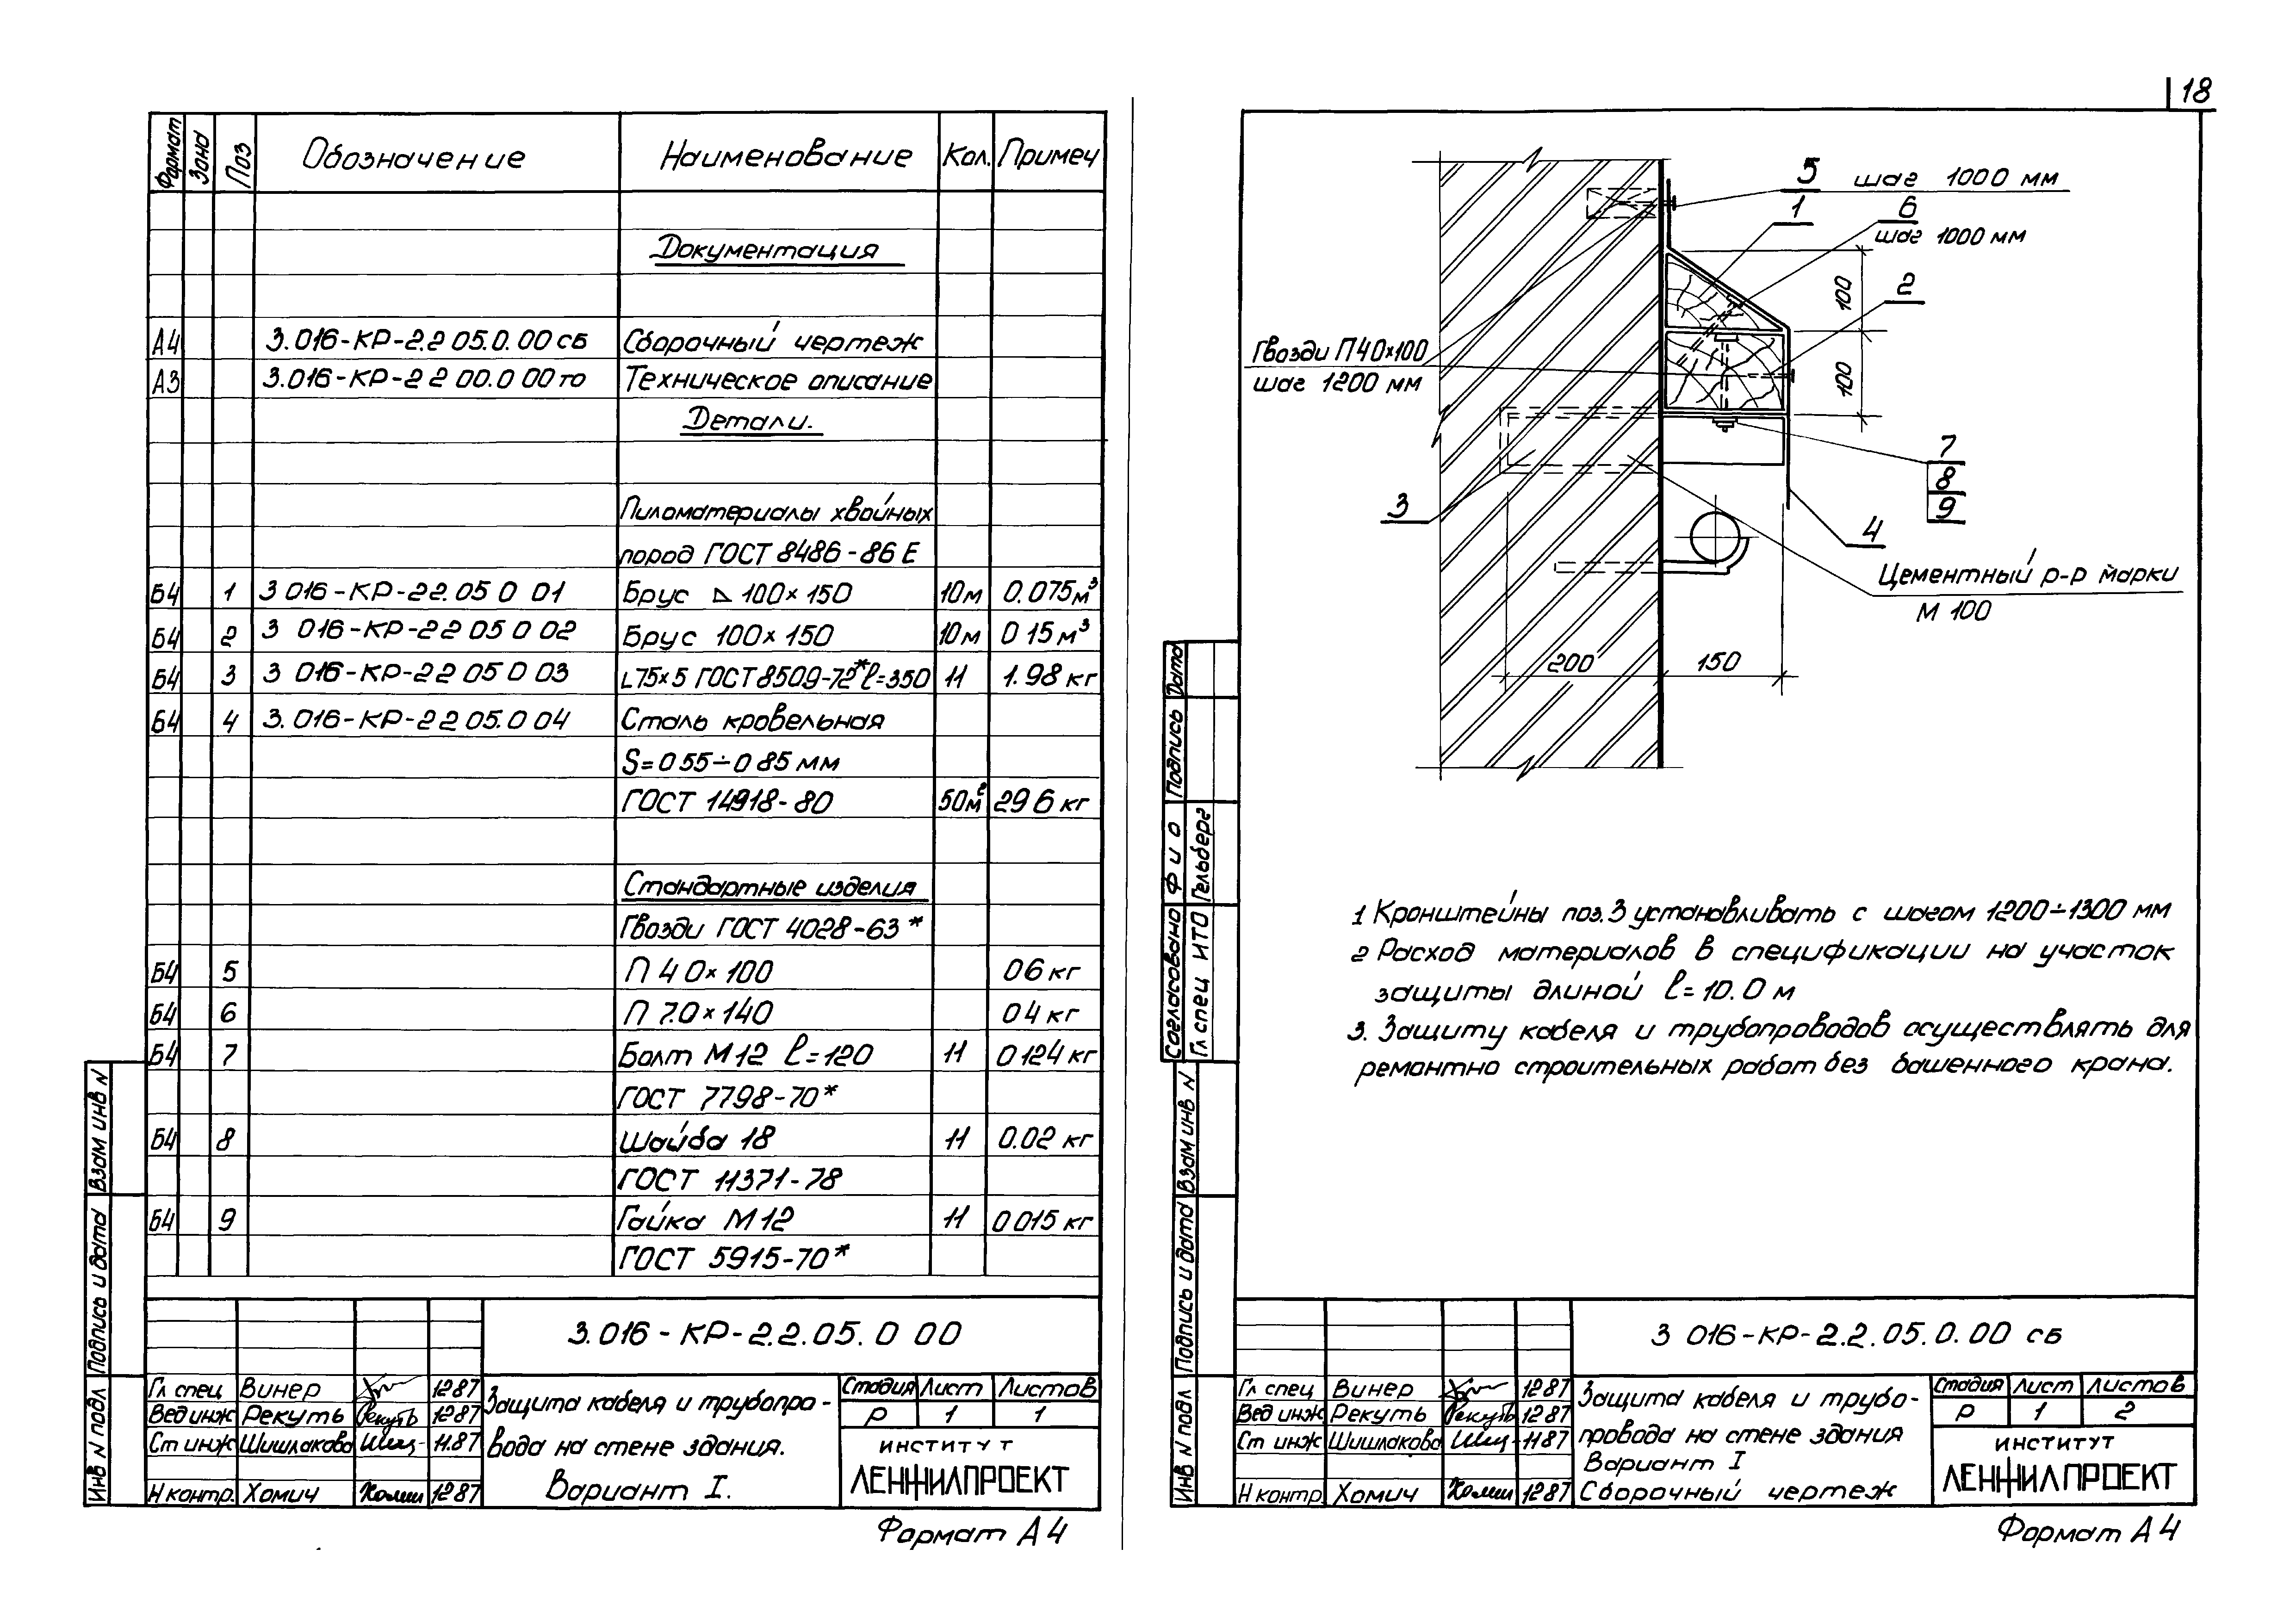 18
Формат Зона Поз Обозначение Наименование Кол. Примеч
Документация
А4 3.016-КР-2.2 05.0.00 сб Сборочный чертеж
А3 3.016-КР-2 2 00.0 00 то Техническое описание
Детали.
Пиломатериалы хвойных
пород ГОСТ 8486-86 Е
Б4 1 3 016-КР-22.05 0 01 Брус ⊿ 100×150 10м 0.075м³
Б4 2 3 016-КР-22 05 0 02 Брус 100×150 10м 0 15м³
Б4 3 3 016-КР-22 05 0 03 L75×5 ГОСТ 8509-72* ℓ=350 11 1.98 кг
Б4 4 3.016-КР-22 05.0 04 Сталь кровельная
S=0 55÷0 85 мм
ГОСТ 14918-80 50м² 29 6 кг
Стандартные изделия
Гвозди ГОСТ 4028-63*
Б4 5 П 4 0×100 0 6 кг
Б4 6 П 7.0×140 0 4 кг
Б4 7 Болт М12 ℓ=120 11 0 124 кг
ГОСТ 7798-70*
Б4 8 Шайба 18 11 0.02 кг
ГОСТ 11371-78
Б4 9 Гайка М12 11 0 015 кг
ГОСТ 5915-70*
Взам инв N
Подпись и дата
Инв N подл
3.016-КР-2.2.05.0 00
Гл спец Винер 12 87
Вед инж Рекуть Рекуть 12 87
Ст инж Шишлакова Шиш- 11.87
Н контр. Хомич Хомич 12 87
Защита кабеля и трубопро-
вода на стене здания.
Вариант I.
Стадия Лист Листов
Р 1 1
ИНСТИТУТ
ЛЕНЖИЛПРОЕКТ
Формат А4
5 шаг 1000 мм
1
6
шаг 1000 мм
2
100
100
Гвозди П40×100
шаг 1200 мм
3
7
8
9
4
Цементный р-р марки
М 100
200 150
1 Кронштейны поз. 3 устанавливать с шагом 1200÷1300 мм
2 Расход материалов в спецификации на участок
защиты длиной ℓ=10.0 м
3. Защиту кабеля и трубопроводов осуществлять для
ремонтно строительных работ без башенного крана.
Согласовано Ф и о Подпись Дата
Гл спец ИТО Гельберг
Взам инв N
Подпись и дата
Инв N подл
3 016-КР-2.2.05.0.00 сб
Гл спец Винер 12 87
Вед инж Рекуть Рекуть 12 87
Ст инж Шишлакова Шиш- 11 87
Н контр. Хомич Хомич 12 87
Защита кабеля и трубо-
провода на стене здания
Вариант I
Сборочный чертеж
Стадия Лист Листов
Р 1 2
ИНСТИТУТ
ЛЕНЖИЛПРОЕКТ
Формат А4